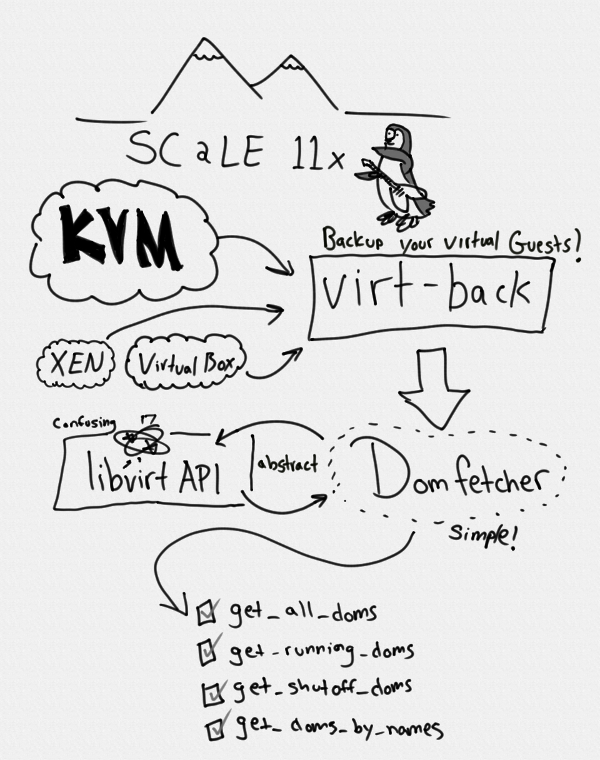 SCaLE 11x
KVM
Backup your virtual Guests!
virt-back
XEN
Virtual Box
Confusing
libvirt API
abstract
Domfetcher
Simple!
get_all_doms
get_running_doms
get_shutoff_doms
get_doms_by_names